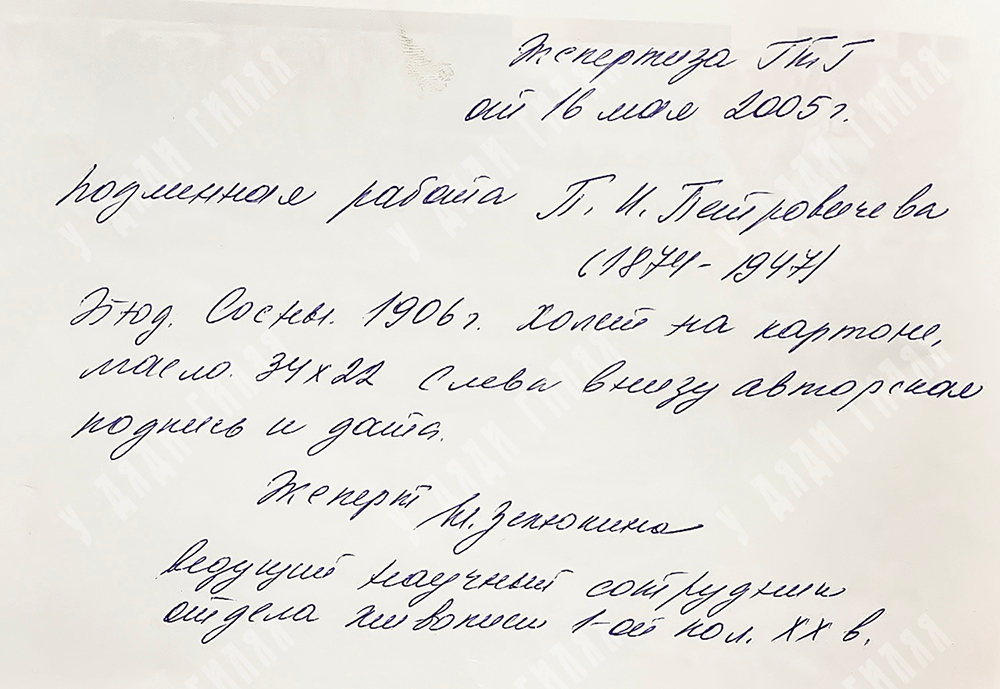 Экспертиза ГТГ
от 16 мая 2005г.
подлинная работа П. И. Петровичева
(1874-1947)
Этюд. Сосны. 1906г. Холст на картоне,
масло. 34х22 Слева внизу авторская
подпись и дата.
Эксперт
ведущий научный сотрудник
отдела живописи 1-ой пол. ХХ в.
У ДЯДИ ГИЛЯЯ